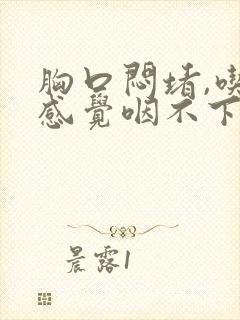 胸口悶堵,喫
感覺咽不下
晨露1